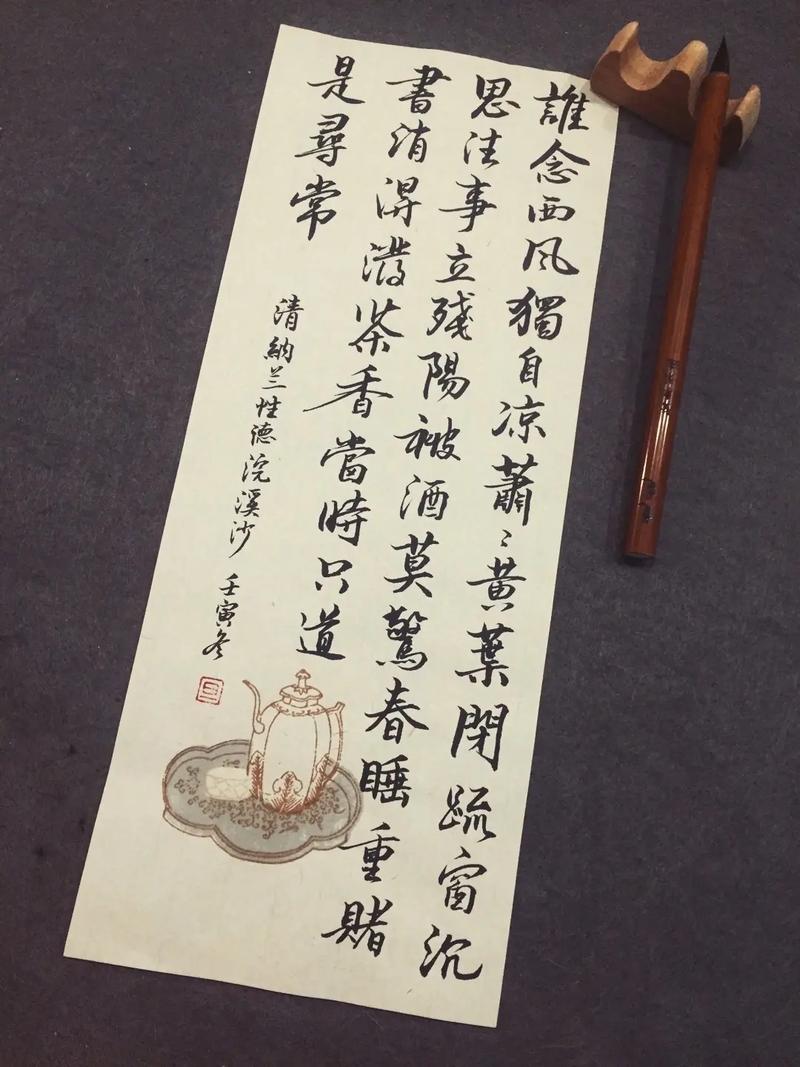 誰念西风獨自凉蕭〻黄葉閉疏窗沉
思往事立殘陽被酒莫驚春睡重賭
書消得潑茶香當時只道
是尋常
清納兰性德浣溪沙 壬寅冬